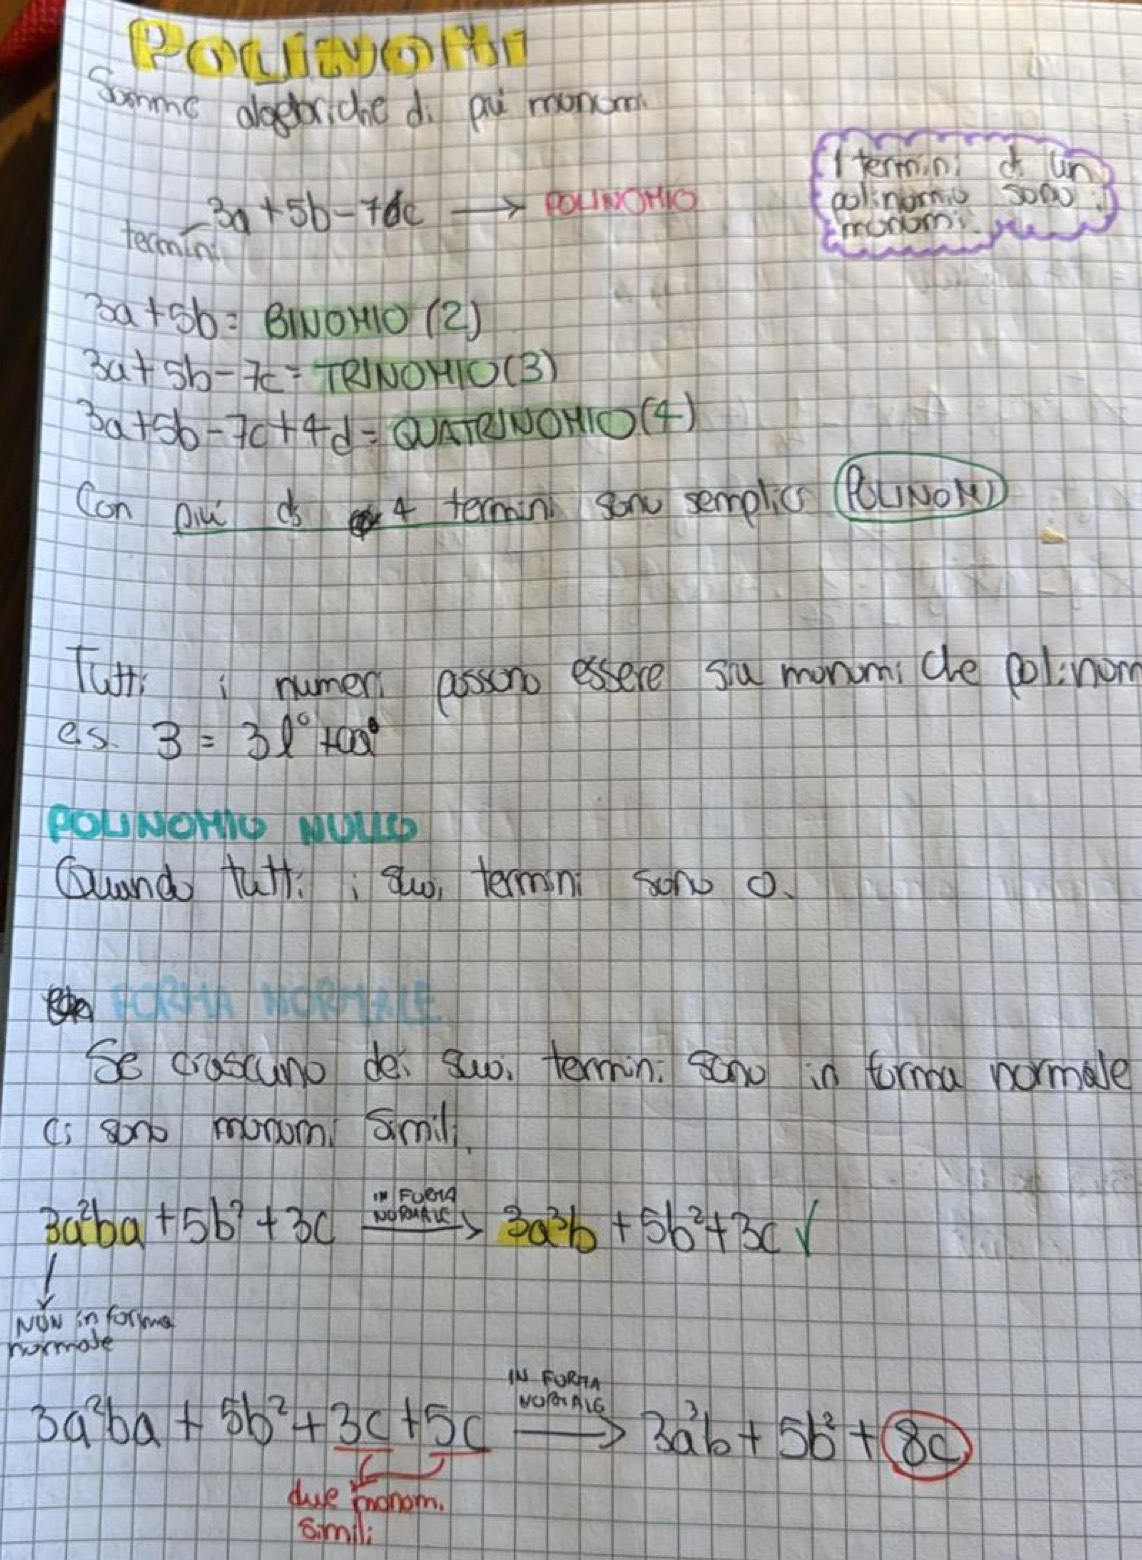 POLINOMI
Somme algebriche di più monomi
I termini di un
polinomio sono
monomi.
3a+5b-7c → POLINOMIO
termini
3a+5b= BINOMIO (2)
3a+5b-7c= TRINOMIO(3)
3a+5b-7c+4d= QUATRINOMIO(4)
Con più di 4 termini sono semplici POLINOMI
Tutti i numeri possono essere sia monomi che polinom
es. 3 = 3l⁰
POLINOMIO NULLO
Quando tutti i suoi termini sono 0.
FORMA NORMALE
Se ciascuno dei suoi termini sono in forma normale
ci sono monomi simili.
3a²ba +5b² +3c IN FORMA NORMALE → 3a³b +5b²+3c ✓
NON in forma
normale
3a²ba + 5b² + 3c +5c IN FORMA NORMALE → 3a³b + 5b² + 8c
due monomi
simili